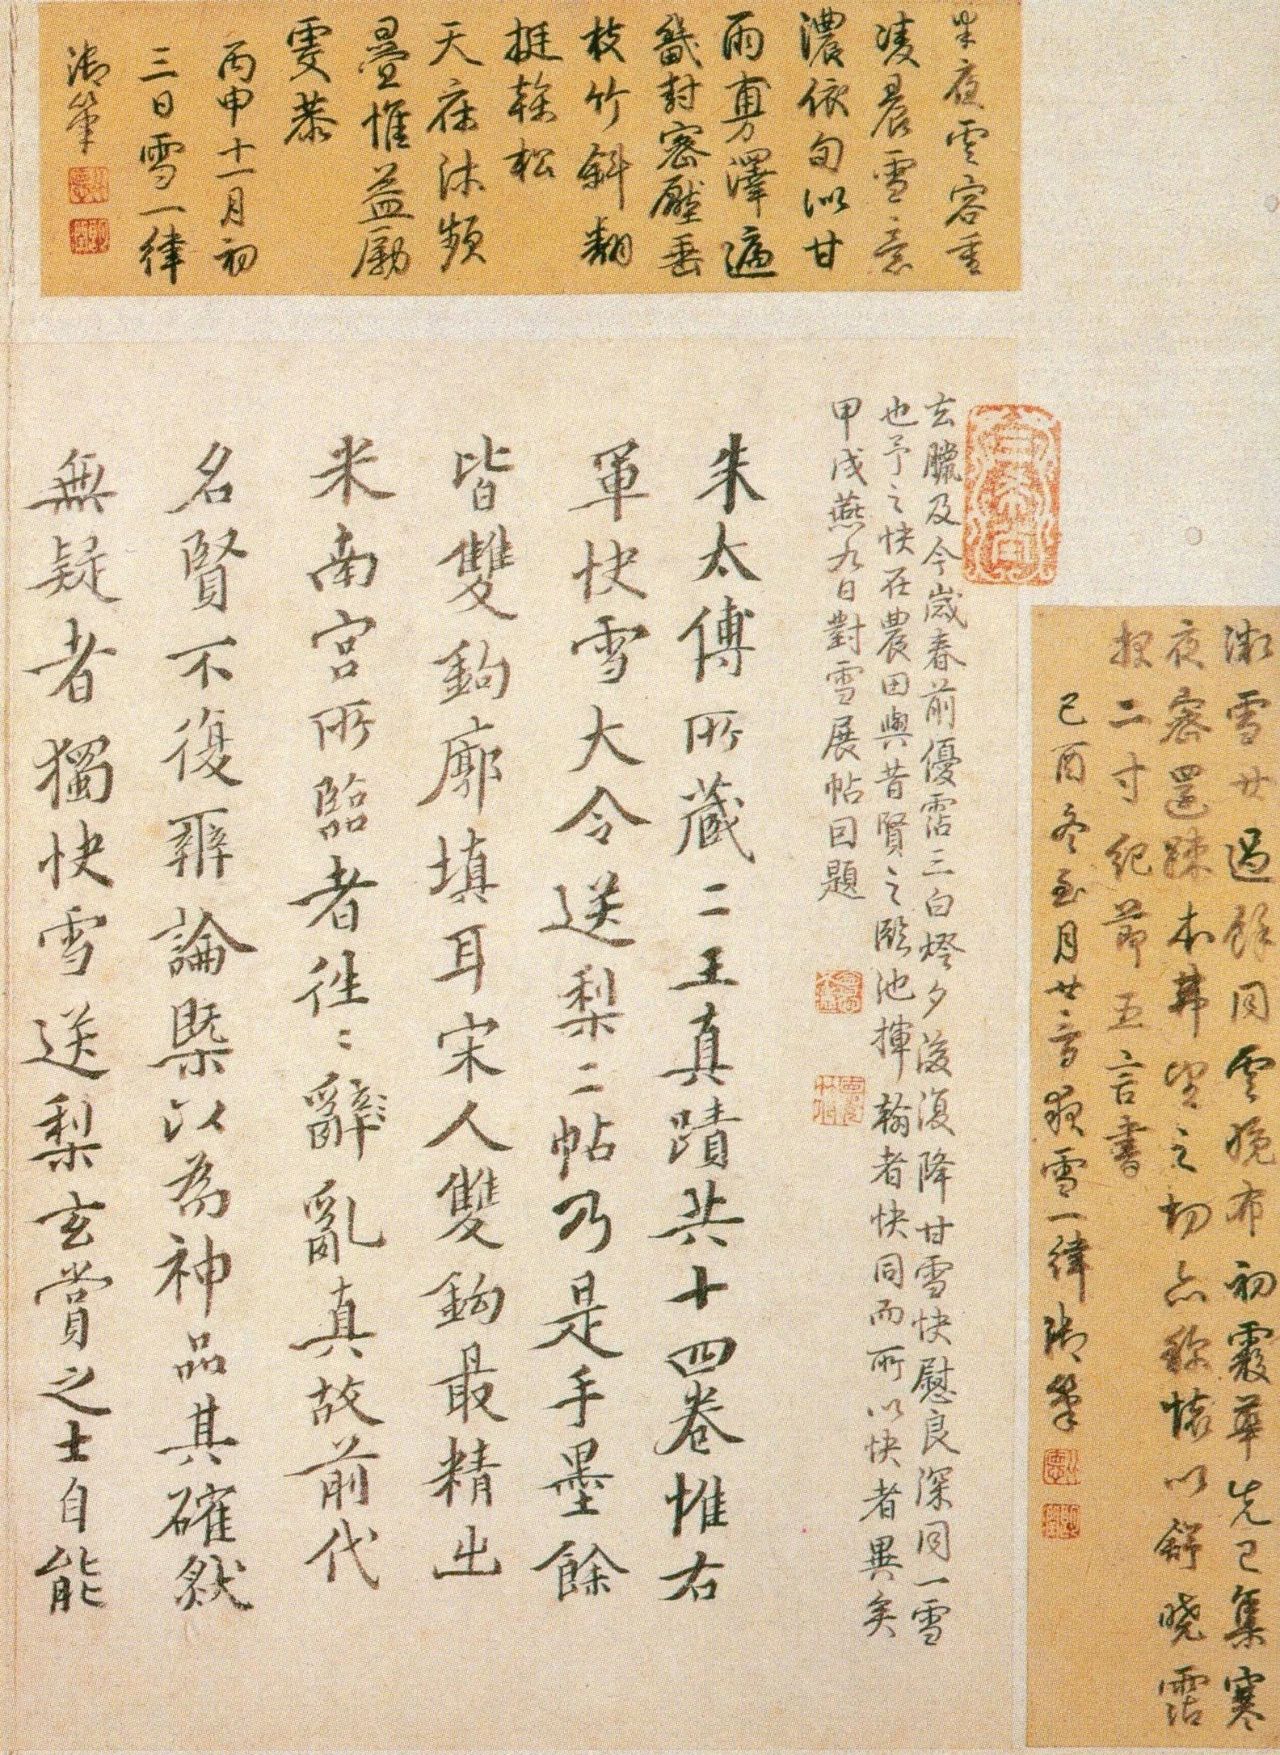 漸雪廿過餘同雲晚布初霰華先已集寒
夜密還疎本弗望之切亦稱懷以舒曉霑
報二寸紀節五言書
己酉冬至月廿二日夜雪一律御筆
半夜雲容重
凌晨雪意
濃依旬似甘
雨專澤遍
畿封密壓垂
枝竹斜翻
挺榦松
天庥沐頻
疊惟益勵
雯恭
丙申十一月初
三日雪一律
御筆
去臘及今歲春前優霑三白燈夕後復降甘雪快慰良深同一雪
也予之快在農田與昔賢之臨池揮翰者快同而所以快者異矣
甲戌燕九日對雪展帖回題
朱太傅所藏二王真蹟共十四卷惟右
軍快雪大令送梨二帖乃是手墨餘
皆雙鉤廓填耳宋人雙鉤最精出
米南宮所臨者往〻辭亂真故前代
名賢不復辨論槩以為神品其確然
無疑者獨快雪送梨玄賞之士自能